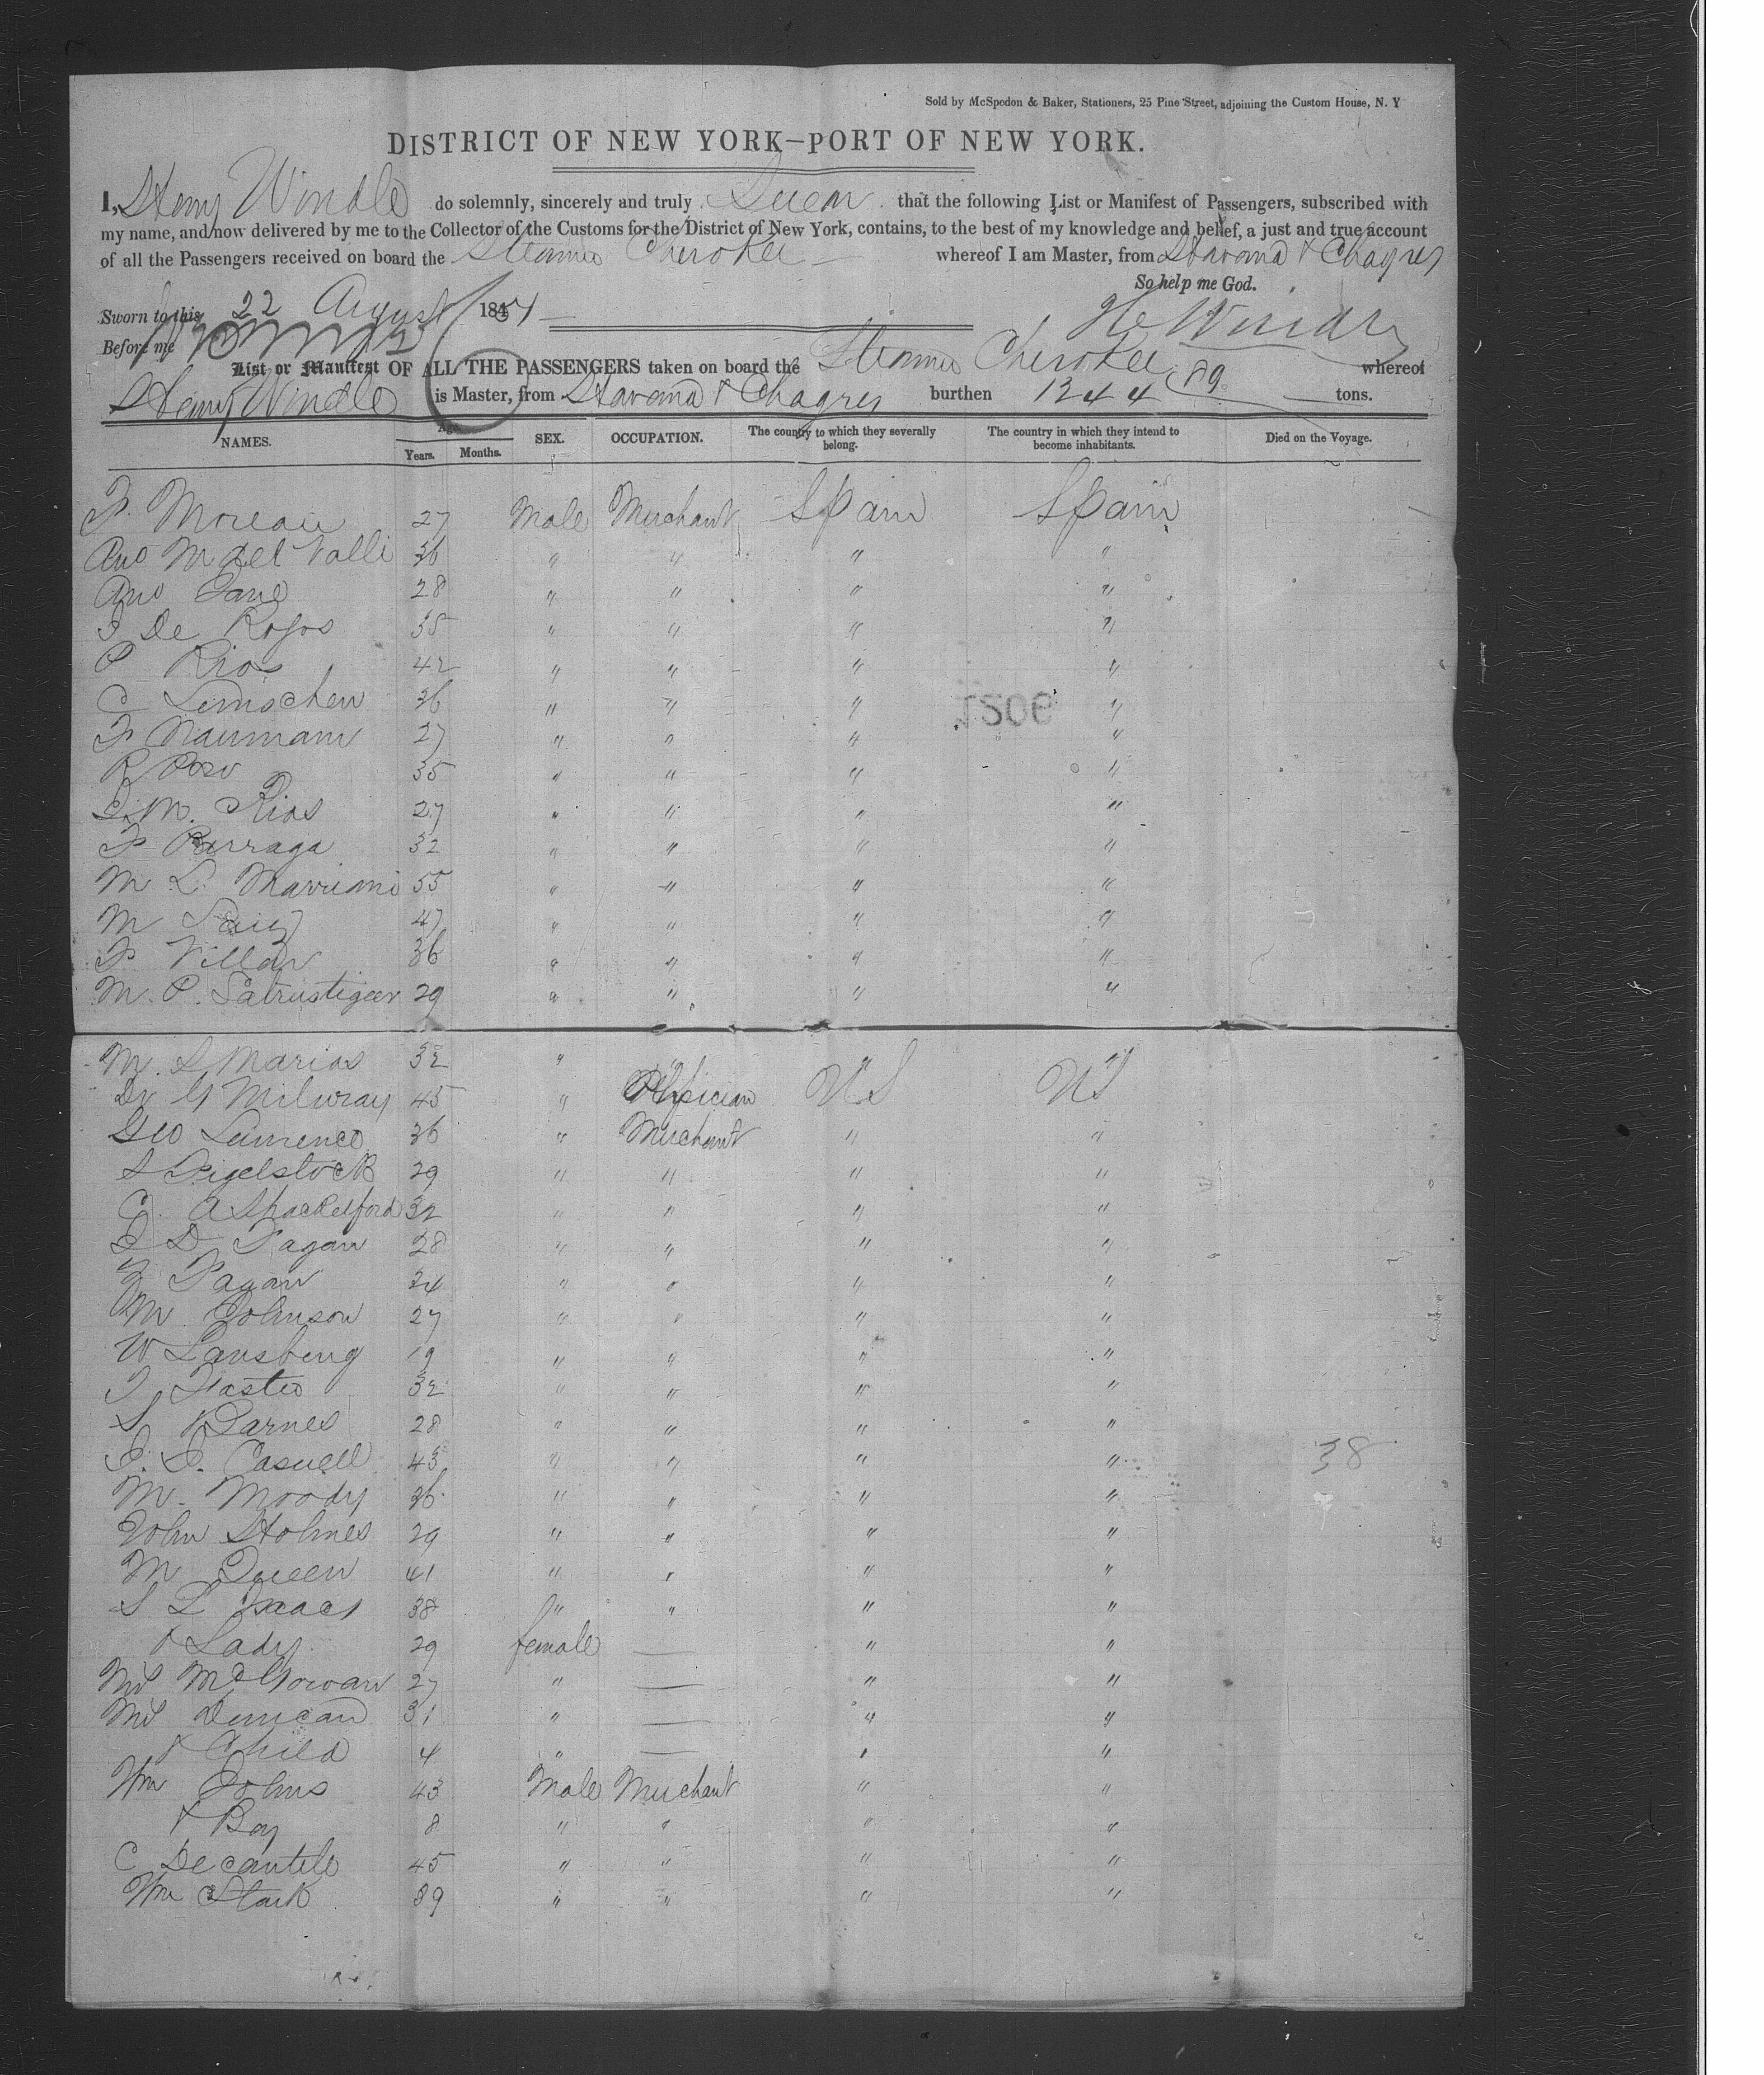 Sold by McSpedon & Baker, Stationers, 25 Pine Street, adjoining the Custom House, N. Y
DISTRICT OF NEW YORK—PORT OF NEW YORK.
I, Henry Windle do solemnly, sincerely and truly Swear that the following List or Manifest of Passengers, subscribed with
my name, and now delivered by me to the Collector of the Customs for the District of New York, contains, to the best of my knowledge and belief, a just and true account
of all the Passengers received on board the Steamer Cherokee whereof I am Master, from Havana & Chagres
So help me God.
Sworn to this 22 August 1851
H Windle
Before me
List or Manifest OF ALL THE PASSENGERS taken on board the Steamer Cherokee whereof
Henry Windle is Master, from Havana & Chagres burthen 1244 89 tons.
NAMES. Age SEX. OCCUPATION. The country to which they severally belong. The country in which they intend to become inhabitants. Died on the Voyage.
Years. Months.
F. Moreau 27 Male Merchant Spain Spain
Ano M del Valle 36 " " " "
Ano Jane 28 " " " "
J De Rojos 35 " " " "
P Rios 42 " " " "
C Lemschen 36 " " " "
F Naumann 27 " " " "
R Pozo 35 " " " "
J. M. Rios 27 " " " "
F Parraga 32 " " " "
M L Marriami 55 " " " "
M 47 " " " "
F Villar 36 " " " "
M. P. Satrustigeer 29 " " " "
M. S Marias 32 " "
Dr G Milwray 45 " Physician US US
Geo Lawrence 36 " Merchant " "
S Digelstock 29 " " " "
C. A Shackelford 32 " " " "
J D Fagan 28 " " " "
Fagan 24 " " " "
M Johnson 27 " " " "
W Lansberg 19 " " " "
J Foster 32 " " " "
S Barnes 28 " " " "
J. J. Caswell 43 " " " "
38
M. Moody 36 " " " "
John Holmes 29 " " " "
M Queen 41 " " " "
S L Isaacs 38 " " " "
& Lady 29 female — " "
Mrs McGowan 27 " — " "
Mrs Duncan 31 " — " "
& Child 4 " — " "
Wm Johns 43 Male Merchant " "
& Boy 8 " " " "
C Decantilo 45 " " " "
Wm Stark 39 " " " "